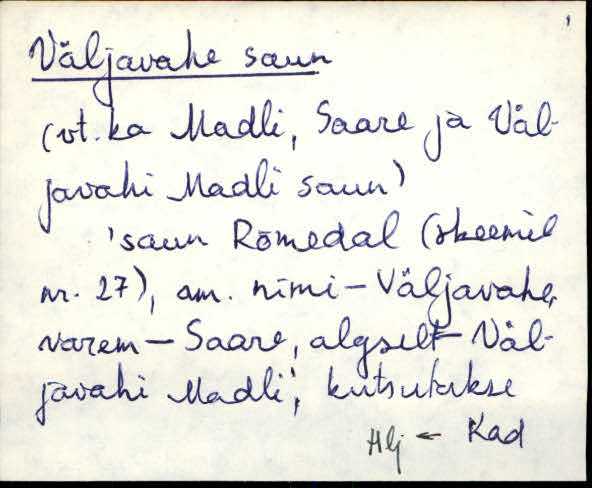 Väljavahe saun
(vt. ka Madli, Saare ja Väl-
javahi Madli saun)
'saun Rõmedal (skeemil
nr. 27), am. nimi – Väljavahe,
varem – Saare, algselt – Väl-
javahi Madli', kutsutakse
Hlj ← Kad